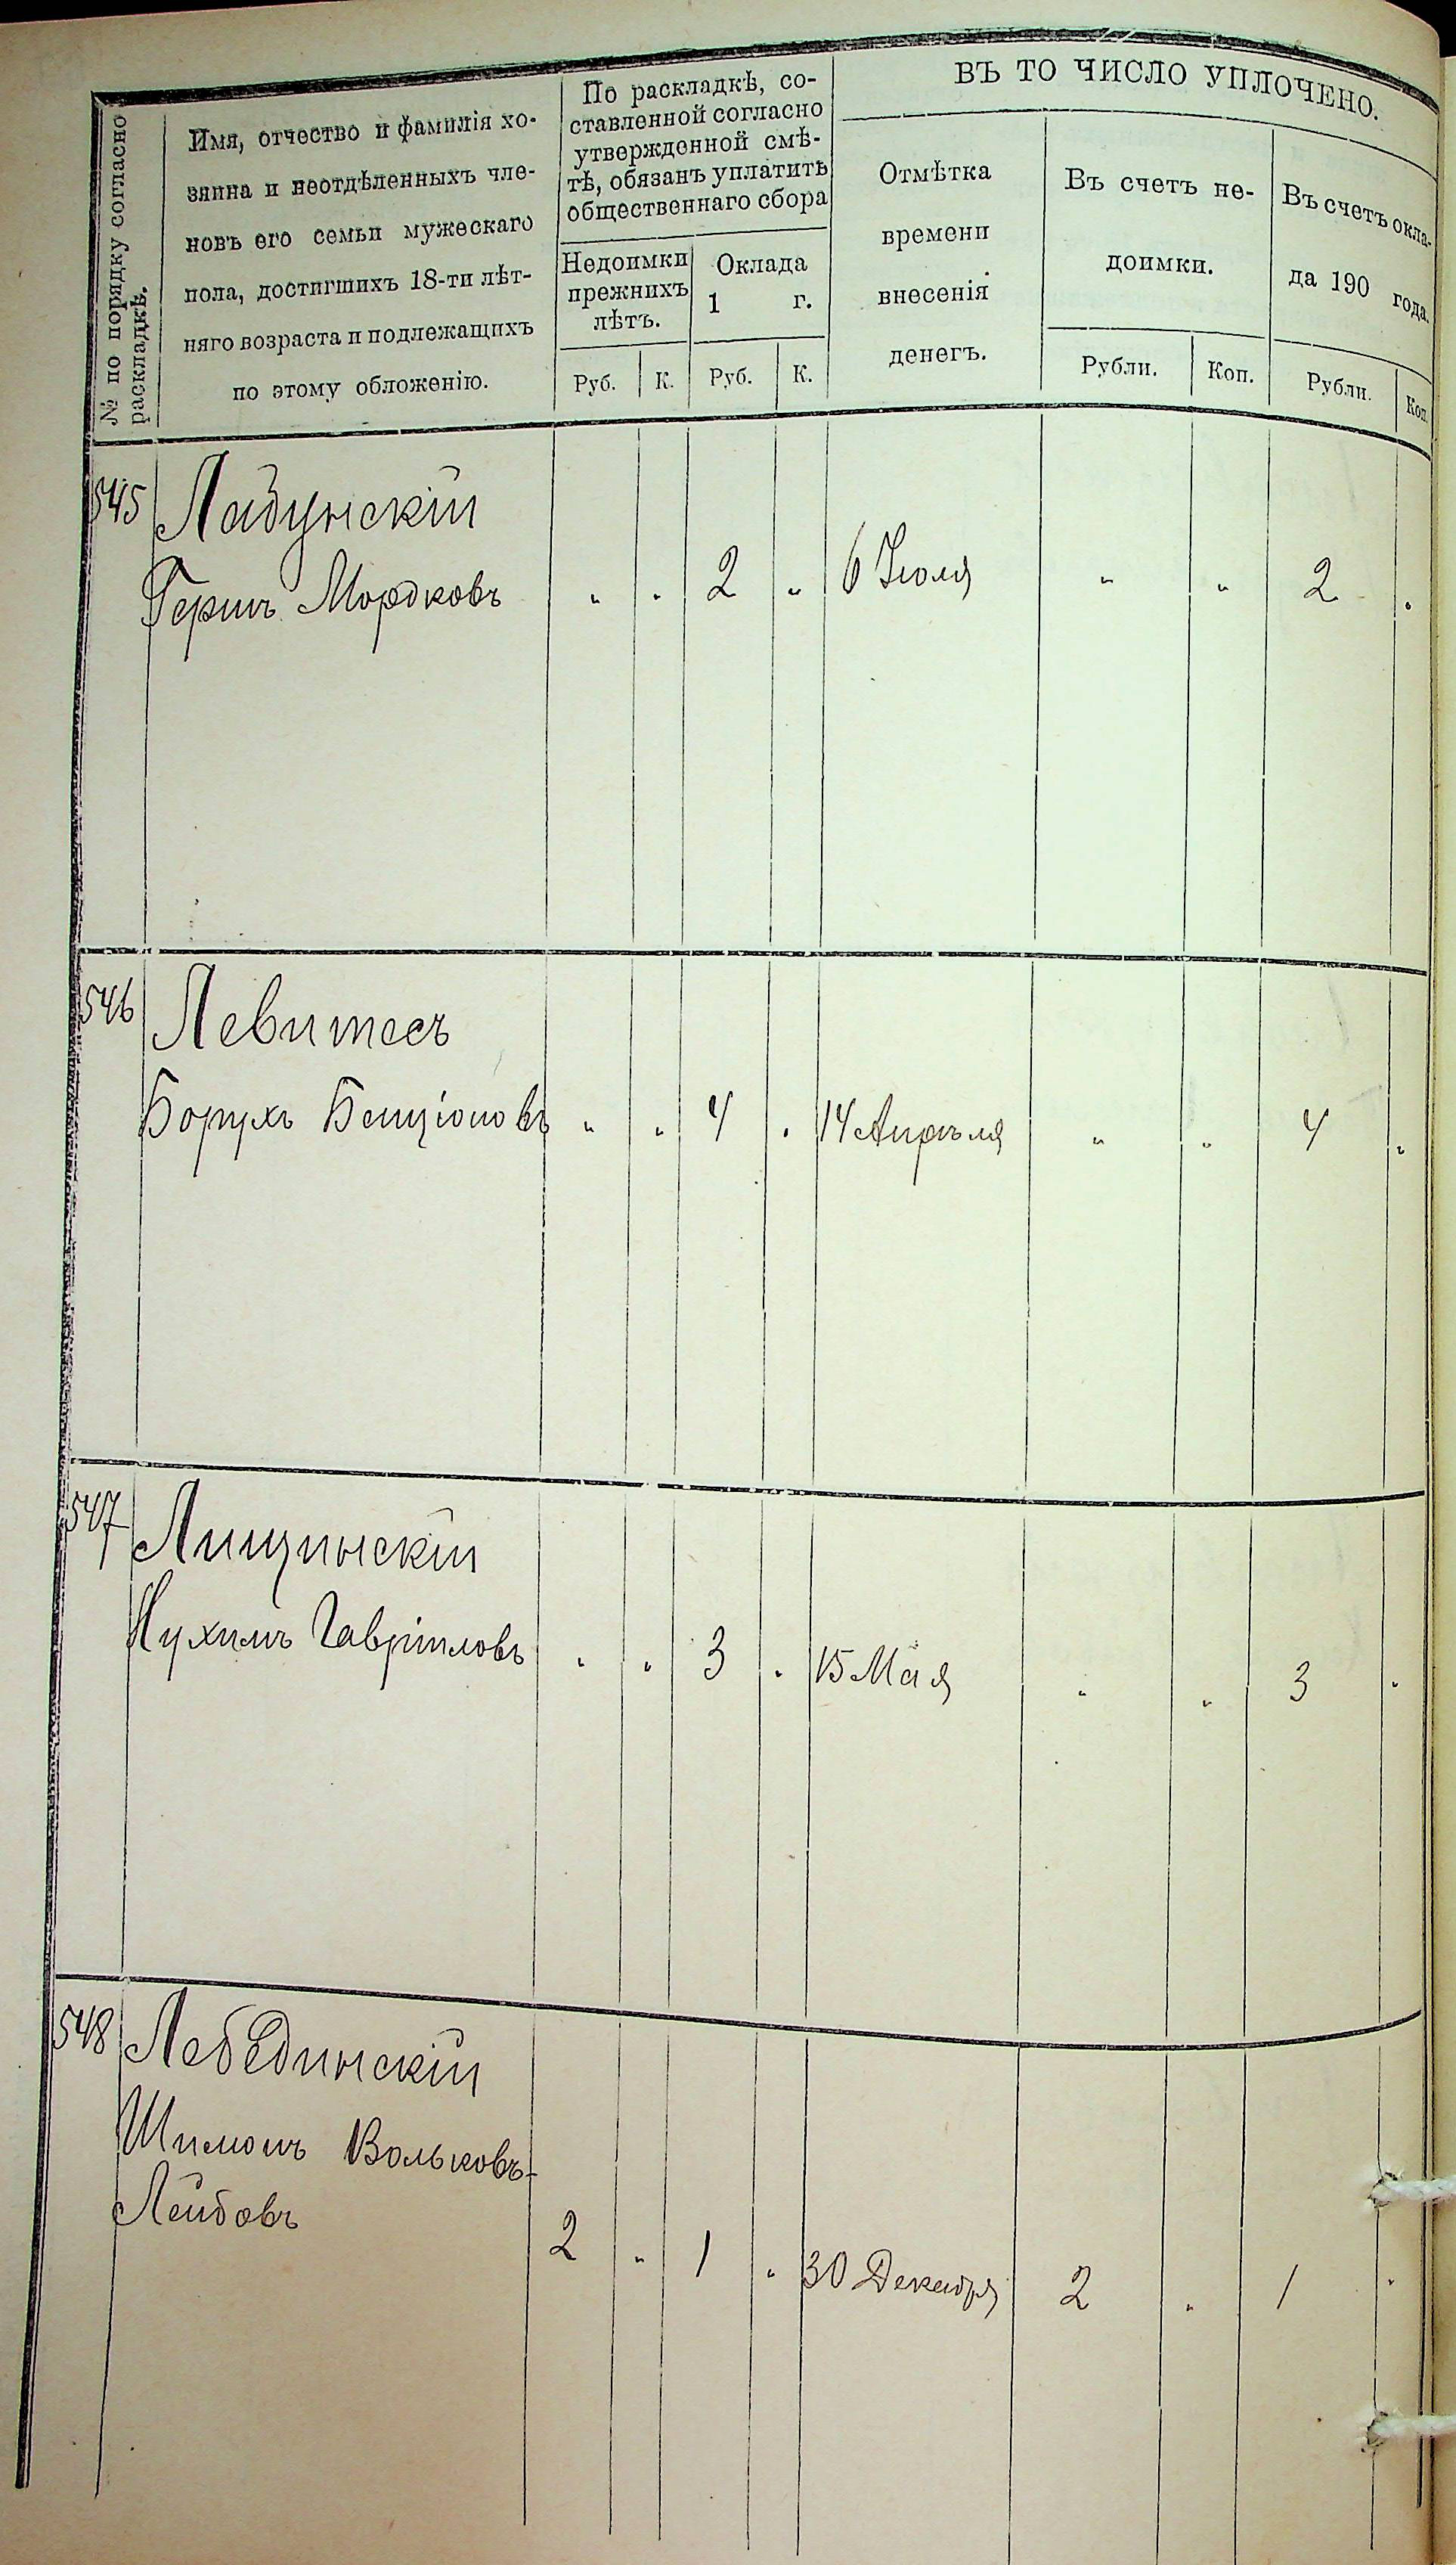 № по порядку согласно
раскладкѣ.
Имя, отчество и фамилія хо-
зяина и неотдѣленныхъ чле-
новъ его семьи мужескаго
пола, достигшихъ 18-ти лѣт-
няго возраста и подлежащихъ
по этому обложенію.
По раскладкѣ, со-
ставленной согласно
утвержденной смѣ-
тѣ, обязанъ уплатить
общественнаго сбора
Недоимки
прежнихъ
лѣтъ.
Оклада
1 г.
Руб. К. Руб. К.
ВЪ ТО ЧИСЛО УПЛОЧЕНО.
Отмѣтка
времени
внесенія
денегъ.
Въ счетъ не-
доимки.
Рубли. Коп.
Въ счетъ окла-
да 190 года.
Рубли. Коп.
545 Ладунскій
Гершъ Мордковъ " " 2 " 6 Іюля " " 2 "
546 Левитесъ
Борухъ Бенціоновъ " " 4 " 14 Апрѣля " " 4 "
547 Лищинскій
Нухимъ Гавріиловъ " " 3 " 15 Мая " " 3 "
548 Лебединскій
Шимонъ Вольковъ-
Лейбовъ
2 " 1 " 30 Декабря 2 " 1 "